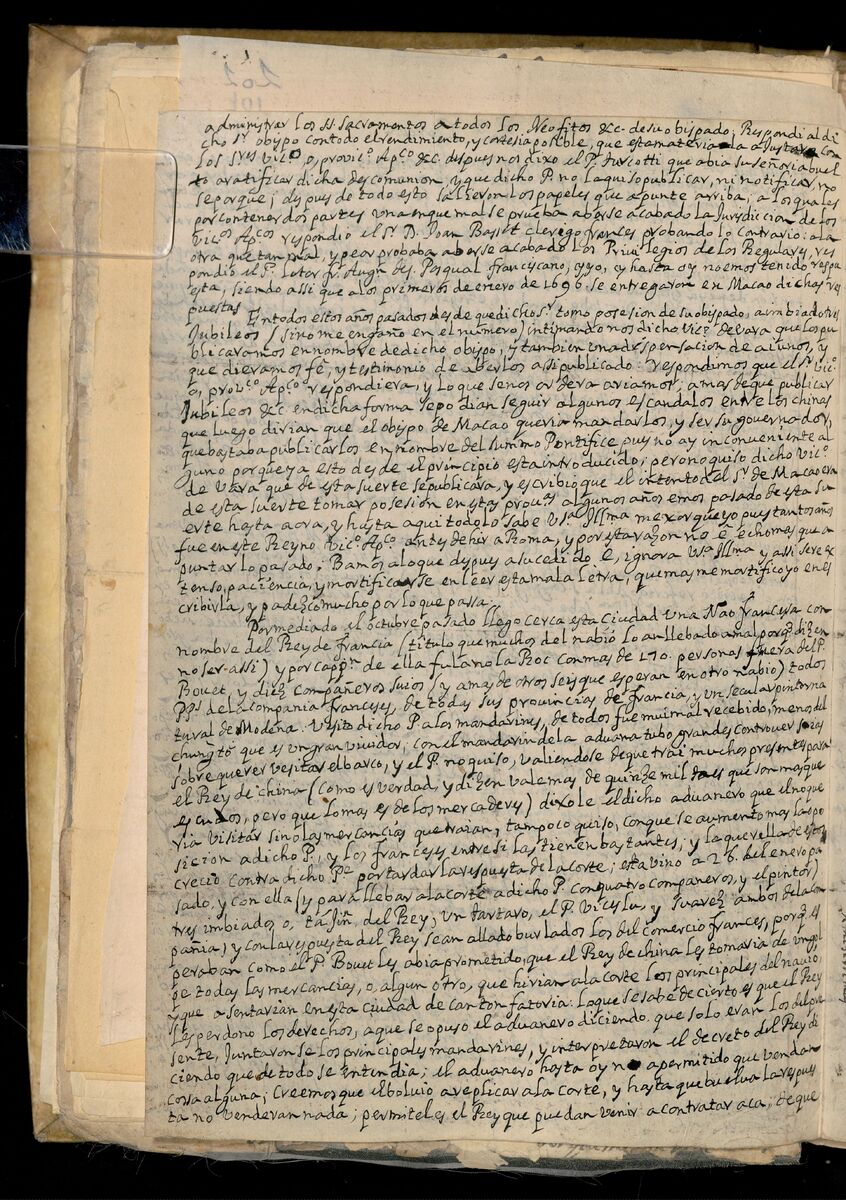 administrar los SS Sacramentos a todos los Neofitos &c. de su obispado; Respondi al di
cho Sr obispo con todo el rendimiento, y cortesia posible, que esta materia la ajustara con
los Sres Vico, o, provico Apco &c despues nos dixo el P. Turcotti que abia su señoria buel
to a ratificar dicha descomunion, y que dicho P. no la quiso publicar, ni notificar, no
se porque; despues de todo esto salieron los papeles que apunte arriba; a los quales
por contener dos partes una en que mal se prueba aberse acabado la Jurysdicion de los
Vicos Apcos respondio el Sr D. Joan Basset clerego frances probando lo contrario: a la
otra que tan mal, y peor probaba aberse acabado los Privilegios de los Regulares, res
pondio el Pe letor fr. Augn de S. Pasqual franciscano, y yo, y hasta oy no emos tenido respu
esta, siendo assi que a los primeros de enero de 1696 se entregaron en Macao dichas res
puestas
En todos estos años pasados desde que dicho Sr tomo posesion de su obispado, a imbiado tres
Jubileos (si no me engaño en el numero) intimandonos dicho Vico de Vara que los pu
blicaramos en nombre de dicho obispo, y tambien una dispensacion de aiunos, y
que dieramos fé, y testimonio de aberlos assi publicado: respondimos que el Sr Vico
o, provico Apco respondiera, y lo que se nos ordenara ariamos; a mas de que publicar
Jubileos &c en dicha forma se podian seguir algunos escandalos entre los chinas
que luego dirian que el obispo de Macao queria mandarlos, y ser su governador,
que bastaba publicarlos en nombre del summo Pontifice pues no ay inconveniente al
guno porque ya esto desde el principio esta introducido; pero no quiso dicho Vico
de Vara que de esta suerte se publicara, y escribio que el intento del Sr de Macao era
de esta suerte tomar posesion en estas provas algunos años emos pasado de esta su
erte hasta aora, y hasta aqui todo lo sabe Vsa Illma mexor que yo pues tantos años
fue en este Reyno Vico Apco antes de hir a Roma, y por esta razon no é echo mas que a
puntar lo pasado; Bamos a lo que despues a sucedido é, ignora Vsa Illma y assi seré ex
tenso, paciencia, y mortificarse en leer esta mala letra, que mas me mortifico yo en es
cribirla, y padezco mucho por lo que passa.
Por mediado el octubre pasado llego cerca esta ciudad una Nao francesa con
nombre del Rey de Francia (titulo que muchos del nabio lo an llebado a mal porqe dizen
no ser assi) y por cappn de ella fulano la Roc con mas de 170. personas fuera del P.
Bouet, y diez compañeros suios (y a mas de otros seis que esperan en otro nabio) todos
PPs de la compania franceses, de todas sus provincias de Francia, y un secular pintor na
tural de Modena. Vesito dicho P. a los mandarines, de todos fue mui mal recebido, menos del
chungto que es un gran vividor; con el mandarin de la aduana tubo grandes controversias
sobre querer vesitar el barco, y el P. no quiso, valiendose de que traí muchos presentes para
el Rey de china (como es verdad, y dizen valen mas de quinze mil taes que son mas que
escudos, pero que lo mas es de los mercaderes) dixole el dicho aduanero que el no que
ria visitar sino las mercancias que traian, tampoco quiso, con que se aumento mas la opo
sicion a dicho P., y los franceses entre si las tienen bastantes; y la querella de estos
crecio contra dicho Pe por tardar la respuesta de la corte; esta vino a 28. del enero pa
sado, y con ella (y para llebar a la corte a dicho P. con quatro compañeros, y el pintor)
tres imbiados o, tajin del Rey; un tartaro, el P. Viceslu, y Suarez ambos de la com
pañia; y con la respuesta del Rey se an allado burlados los del comercio frances, porqe es
peraban como el P. Bouet les abia prometido, que el Rey de china les tomaria de un gol
pe todas las mercancias, o, algun otro, que hirian a la corte los principales del navio
y que asentarian en esta ciudad de canton fatoria: la que se sabe de cierto es que el Rey
les perdono los derechos, a que se opuso el aduanero diciendo que solo eran los del pre
sente, Juntaronse los principales mandarines, y interpretaron el decreto del Rey di
ciendo que de todo se entendia; el aduanero hasta oy no a permitido que vendan
cosa alguna; creemos que el bolvio a replicar a la corte, y hasta que buelva la respues
ta no venderan nada; permiteles el Rey que puedan venir a contratar aca; de que